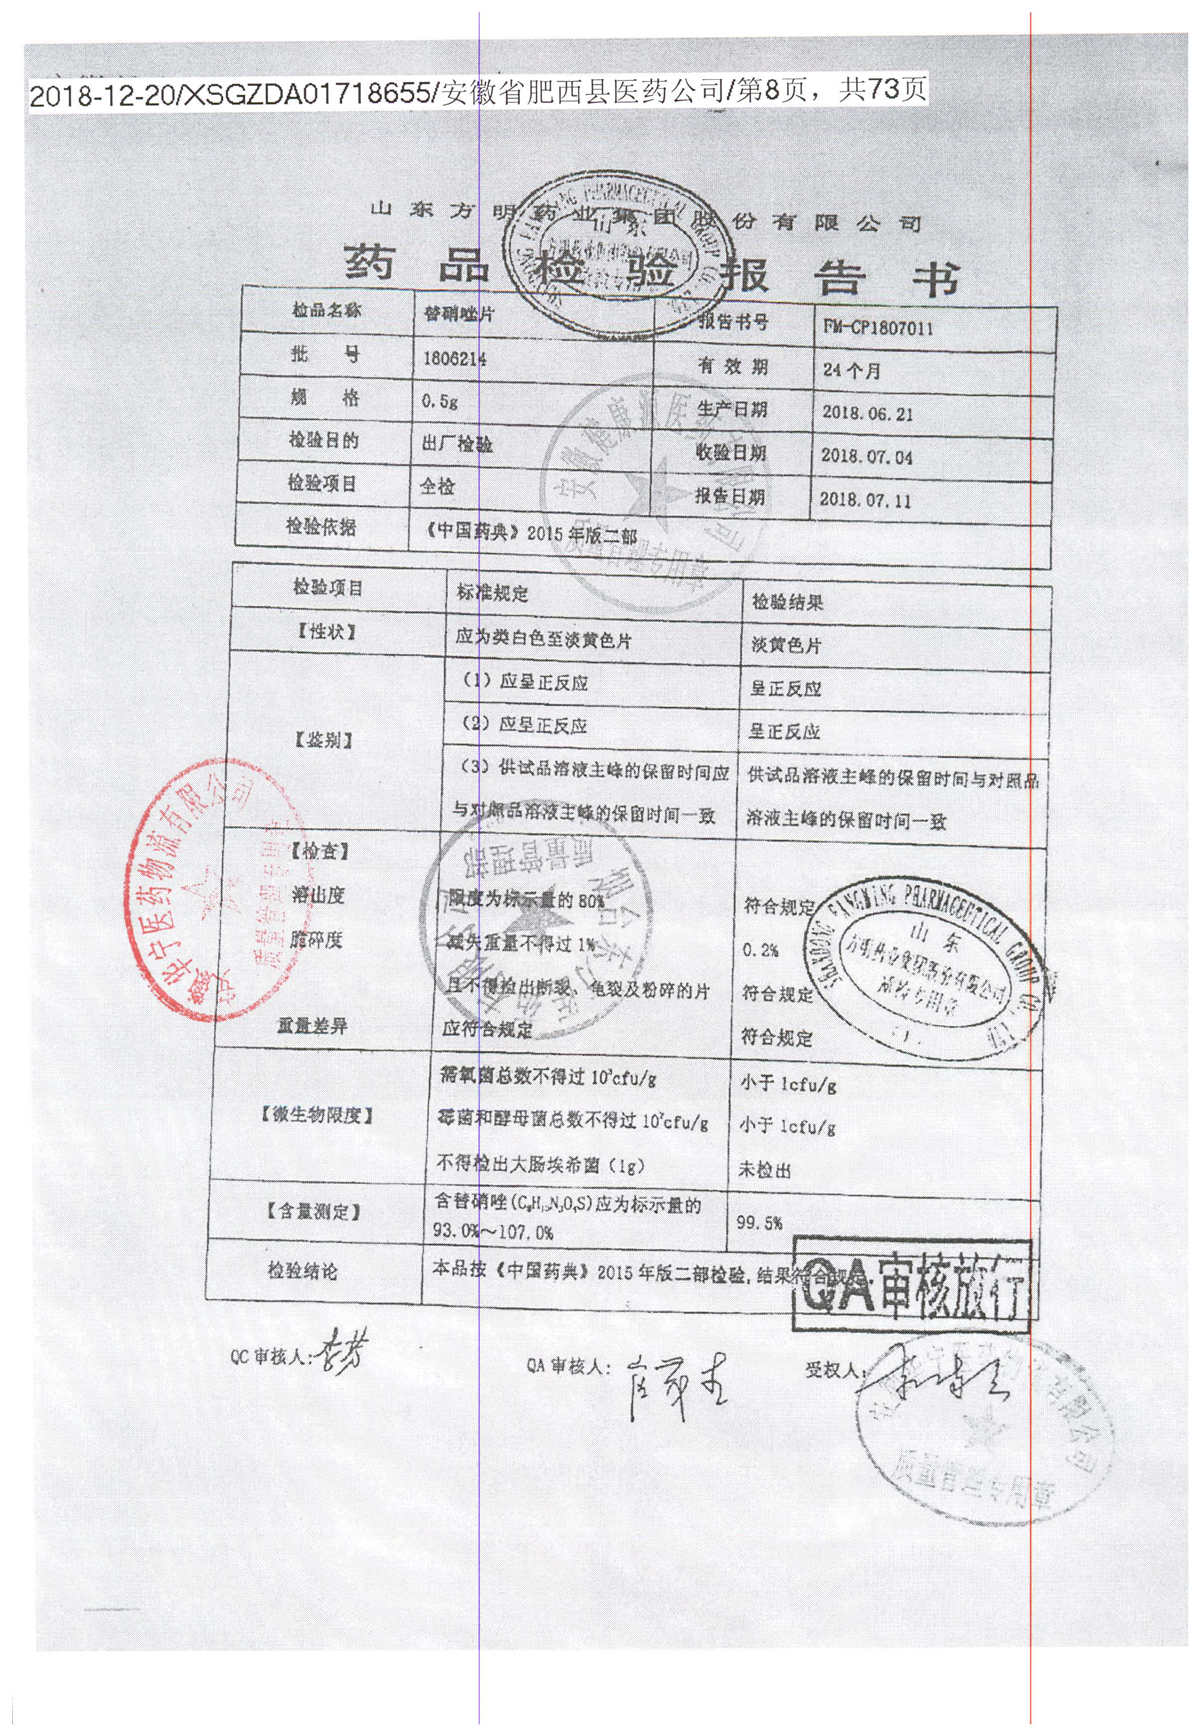 2018-12-20/XSGZDA01718655/安徽省肥西县医药公司/第8页，共73页
山东方明药业集团股份有限公司
药品检验报告书
检品名称 替硝唑片 报告书号 FM-CP1807011
批 号 1806214 有效期 24个月
规 格 0.5g 生产日期 2018.06.21
检验目的 出厂检验 收验日期 2018.07.04
检验项目 全检 报告日期 2018.07.11
检验依据 《中国药典》2015年版二部
检验项目 标准规定 检验结果
【性状】 应为类白色至淡黄色片 淡黄色片
【鉴别】
（1）应呈正反应 呈正反应
（2）应呈正反应 呈正反应
（3）供试品溶液主峰的保留时间应 供试品溶液主峰的保留时间与对照品
与对照品溶液主峰的保留时间一致 溶液主峰的保留时间一致
【检查】
溶出度 限度为标示量的80% 符合规定
脆碎度 减失重量不得过1% 0.2%
且不得检出断裂、龟裂及粉碎的片 符合规定
重量差异 应符合规定 符合规定
【微生物限度】
需氧菌总数不得过10³cfu/g 小于1cfu/g
霉菌和酵母菌总数不得过10²cfu/g 小于1cfu/g
不得检出大肠埃希菌（1g） 未检出
【含量测定】 含替硝唑(C₈H₁₃N₃O₄S)应为标示量的
93.0%～107.0% 99.5%
检验结论 本品按《中国药典》2015年版二部检验,结果符合规定.
QA审核放行
QC审核人:
QA审核人:
受权人:
SHANDONG FANGMING PHARMACEUTICAL GROUP CO., LTD
山东
方明药业集团股份有限公司
质检专用章
安徽华宁医药物流有限公司
质量管理专用章
质量管理专用章
质量管理部
质量管理专用章